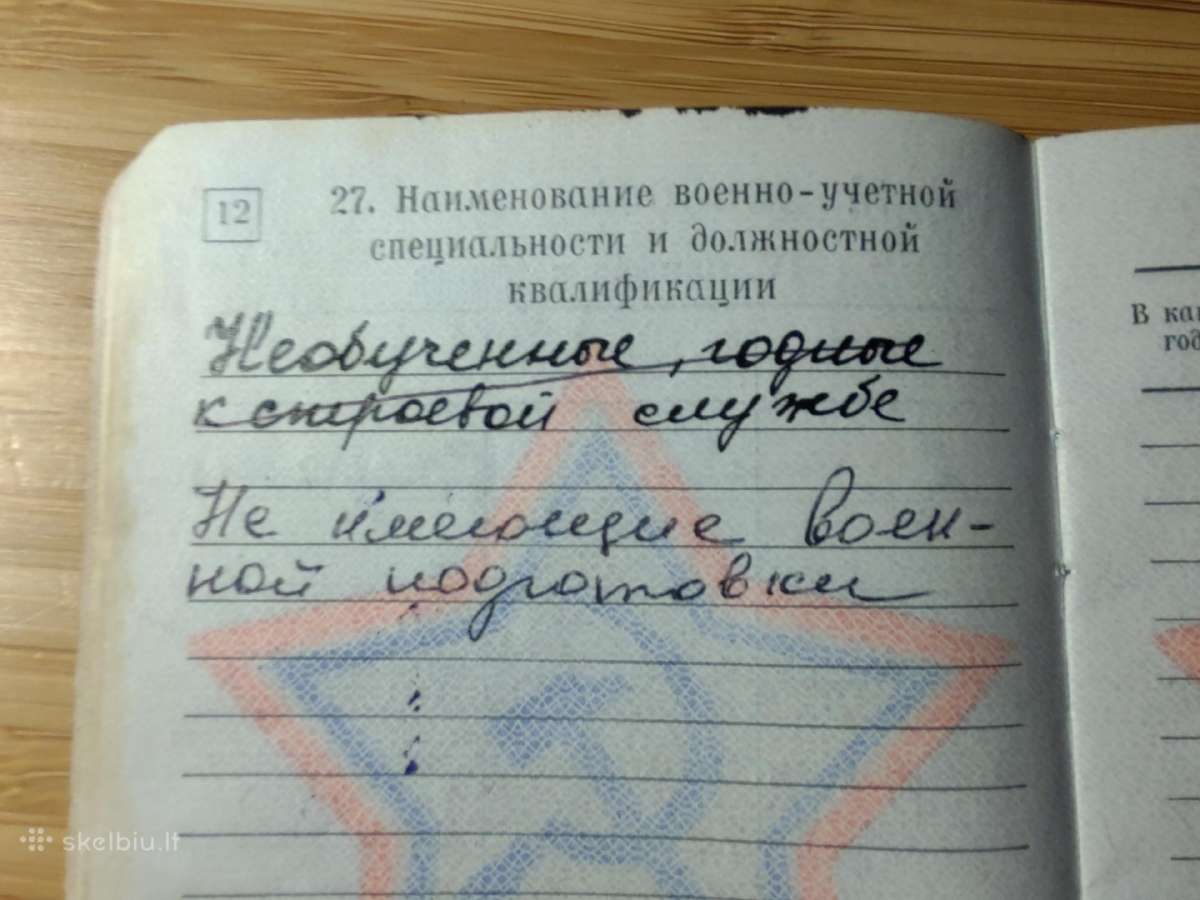 12
27. Наименование военно-учетной
специальности и должностной
квалификации
Необученные, годные
к строевой службе
Не имеющие воен-
ной подготовки
В
skelbiu.lt